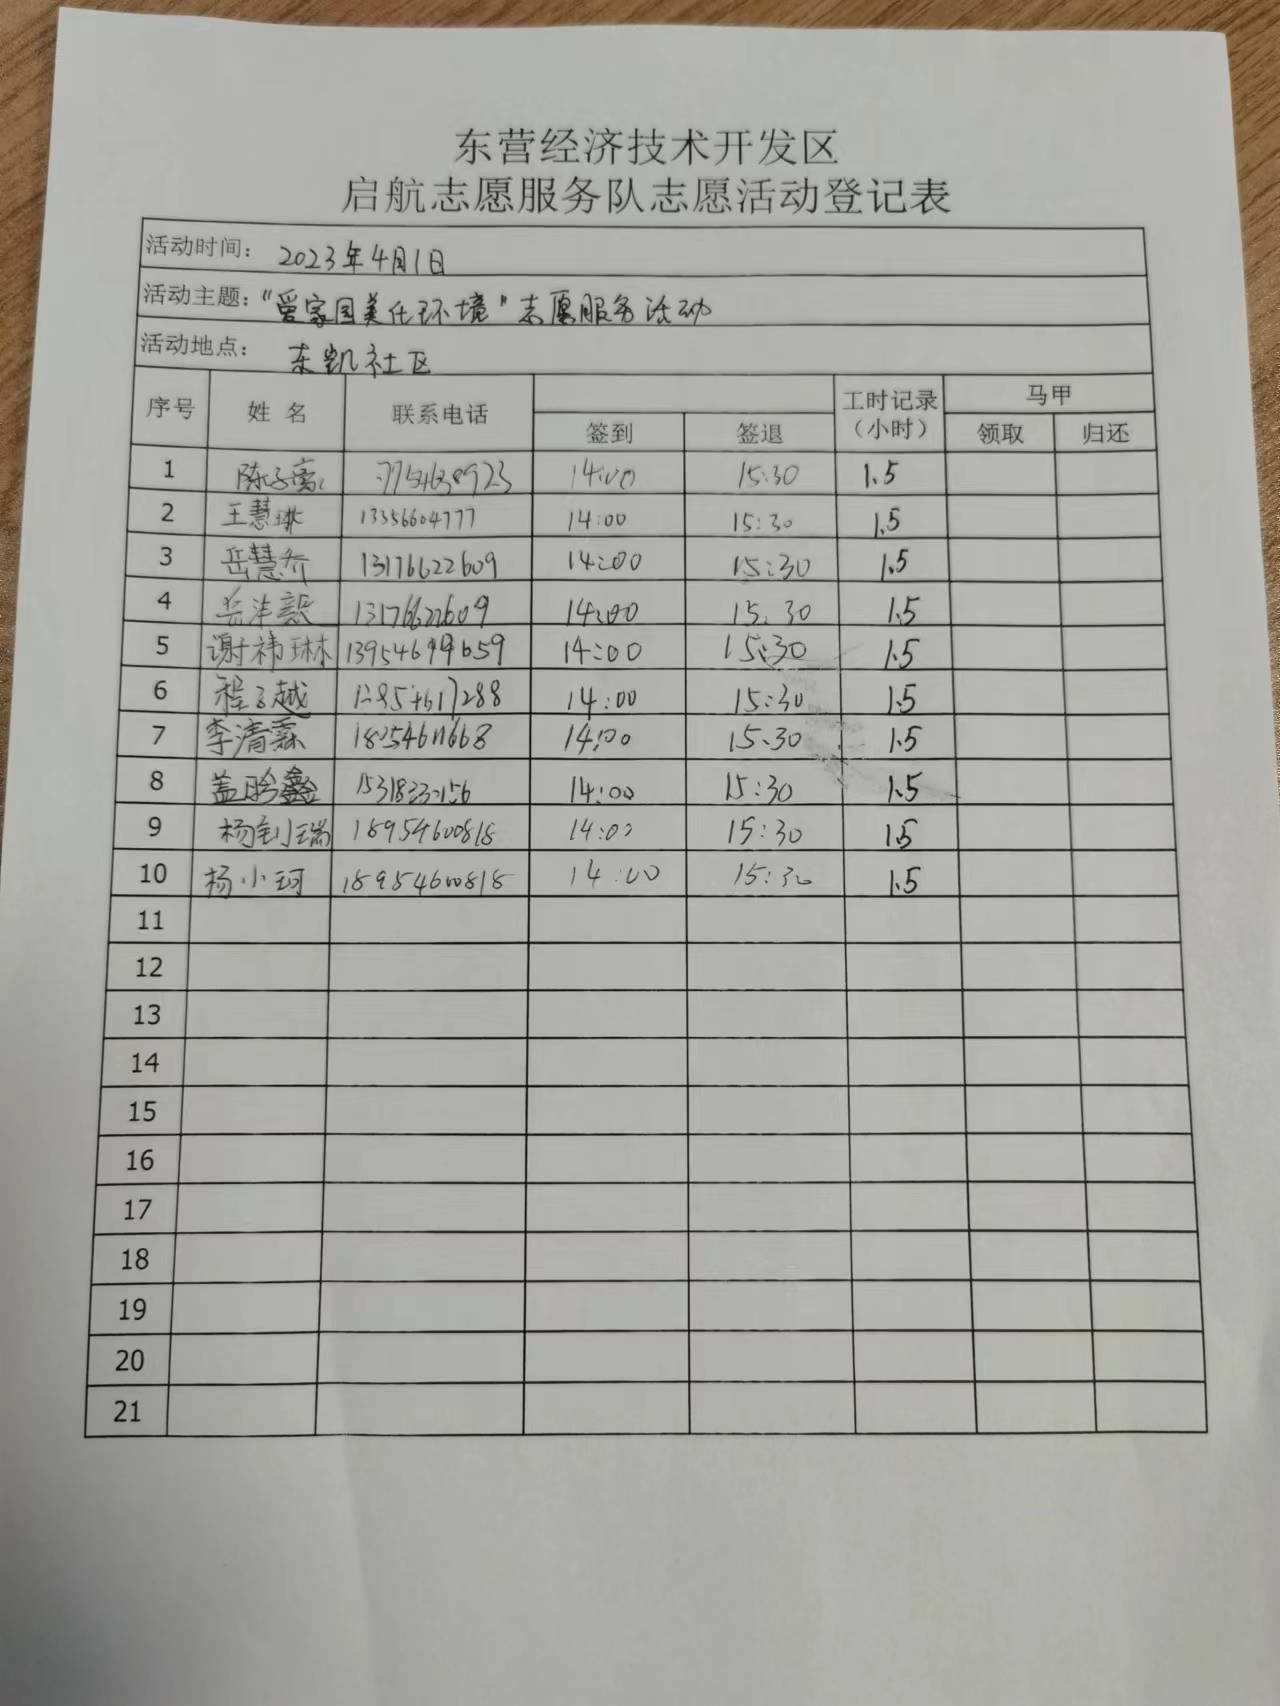 东营经济技术开发区
启航志愿服务队志愿活动登记表
活动时间： 2023年4月1日
活动主题：“爱家国美化环境”志愿服务活动
活动地点： 东凯社区
序号 姓名 联系电话 签到 签退 工时记录（小时） 马甲 领取 归还
1 陈子 14:00 15:30 1.5
2 王慧琳 13356604777 14:00 15:30 1.5
3 岳慧乔 13176622609 14:00 15:30 1.5
4 13176622609 14:00 15:30 1.5
5 谢祎琳 14:00 15:30 1.5
6 程子越 14:00 15:30 1.5
7 李清霖 14:00 15:30 1.5
8 盖 鑫 14:00 15:30 1.5
9 杨钊瑞 18954600818 14:00 15:30 1.5
10 杨小珂 18954600818 14:00 15:30 1.5
11
12
13
14
15
16
17
18
19
20
21